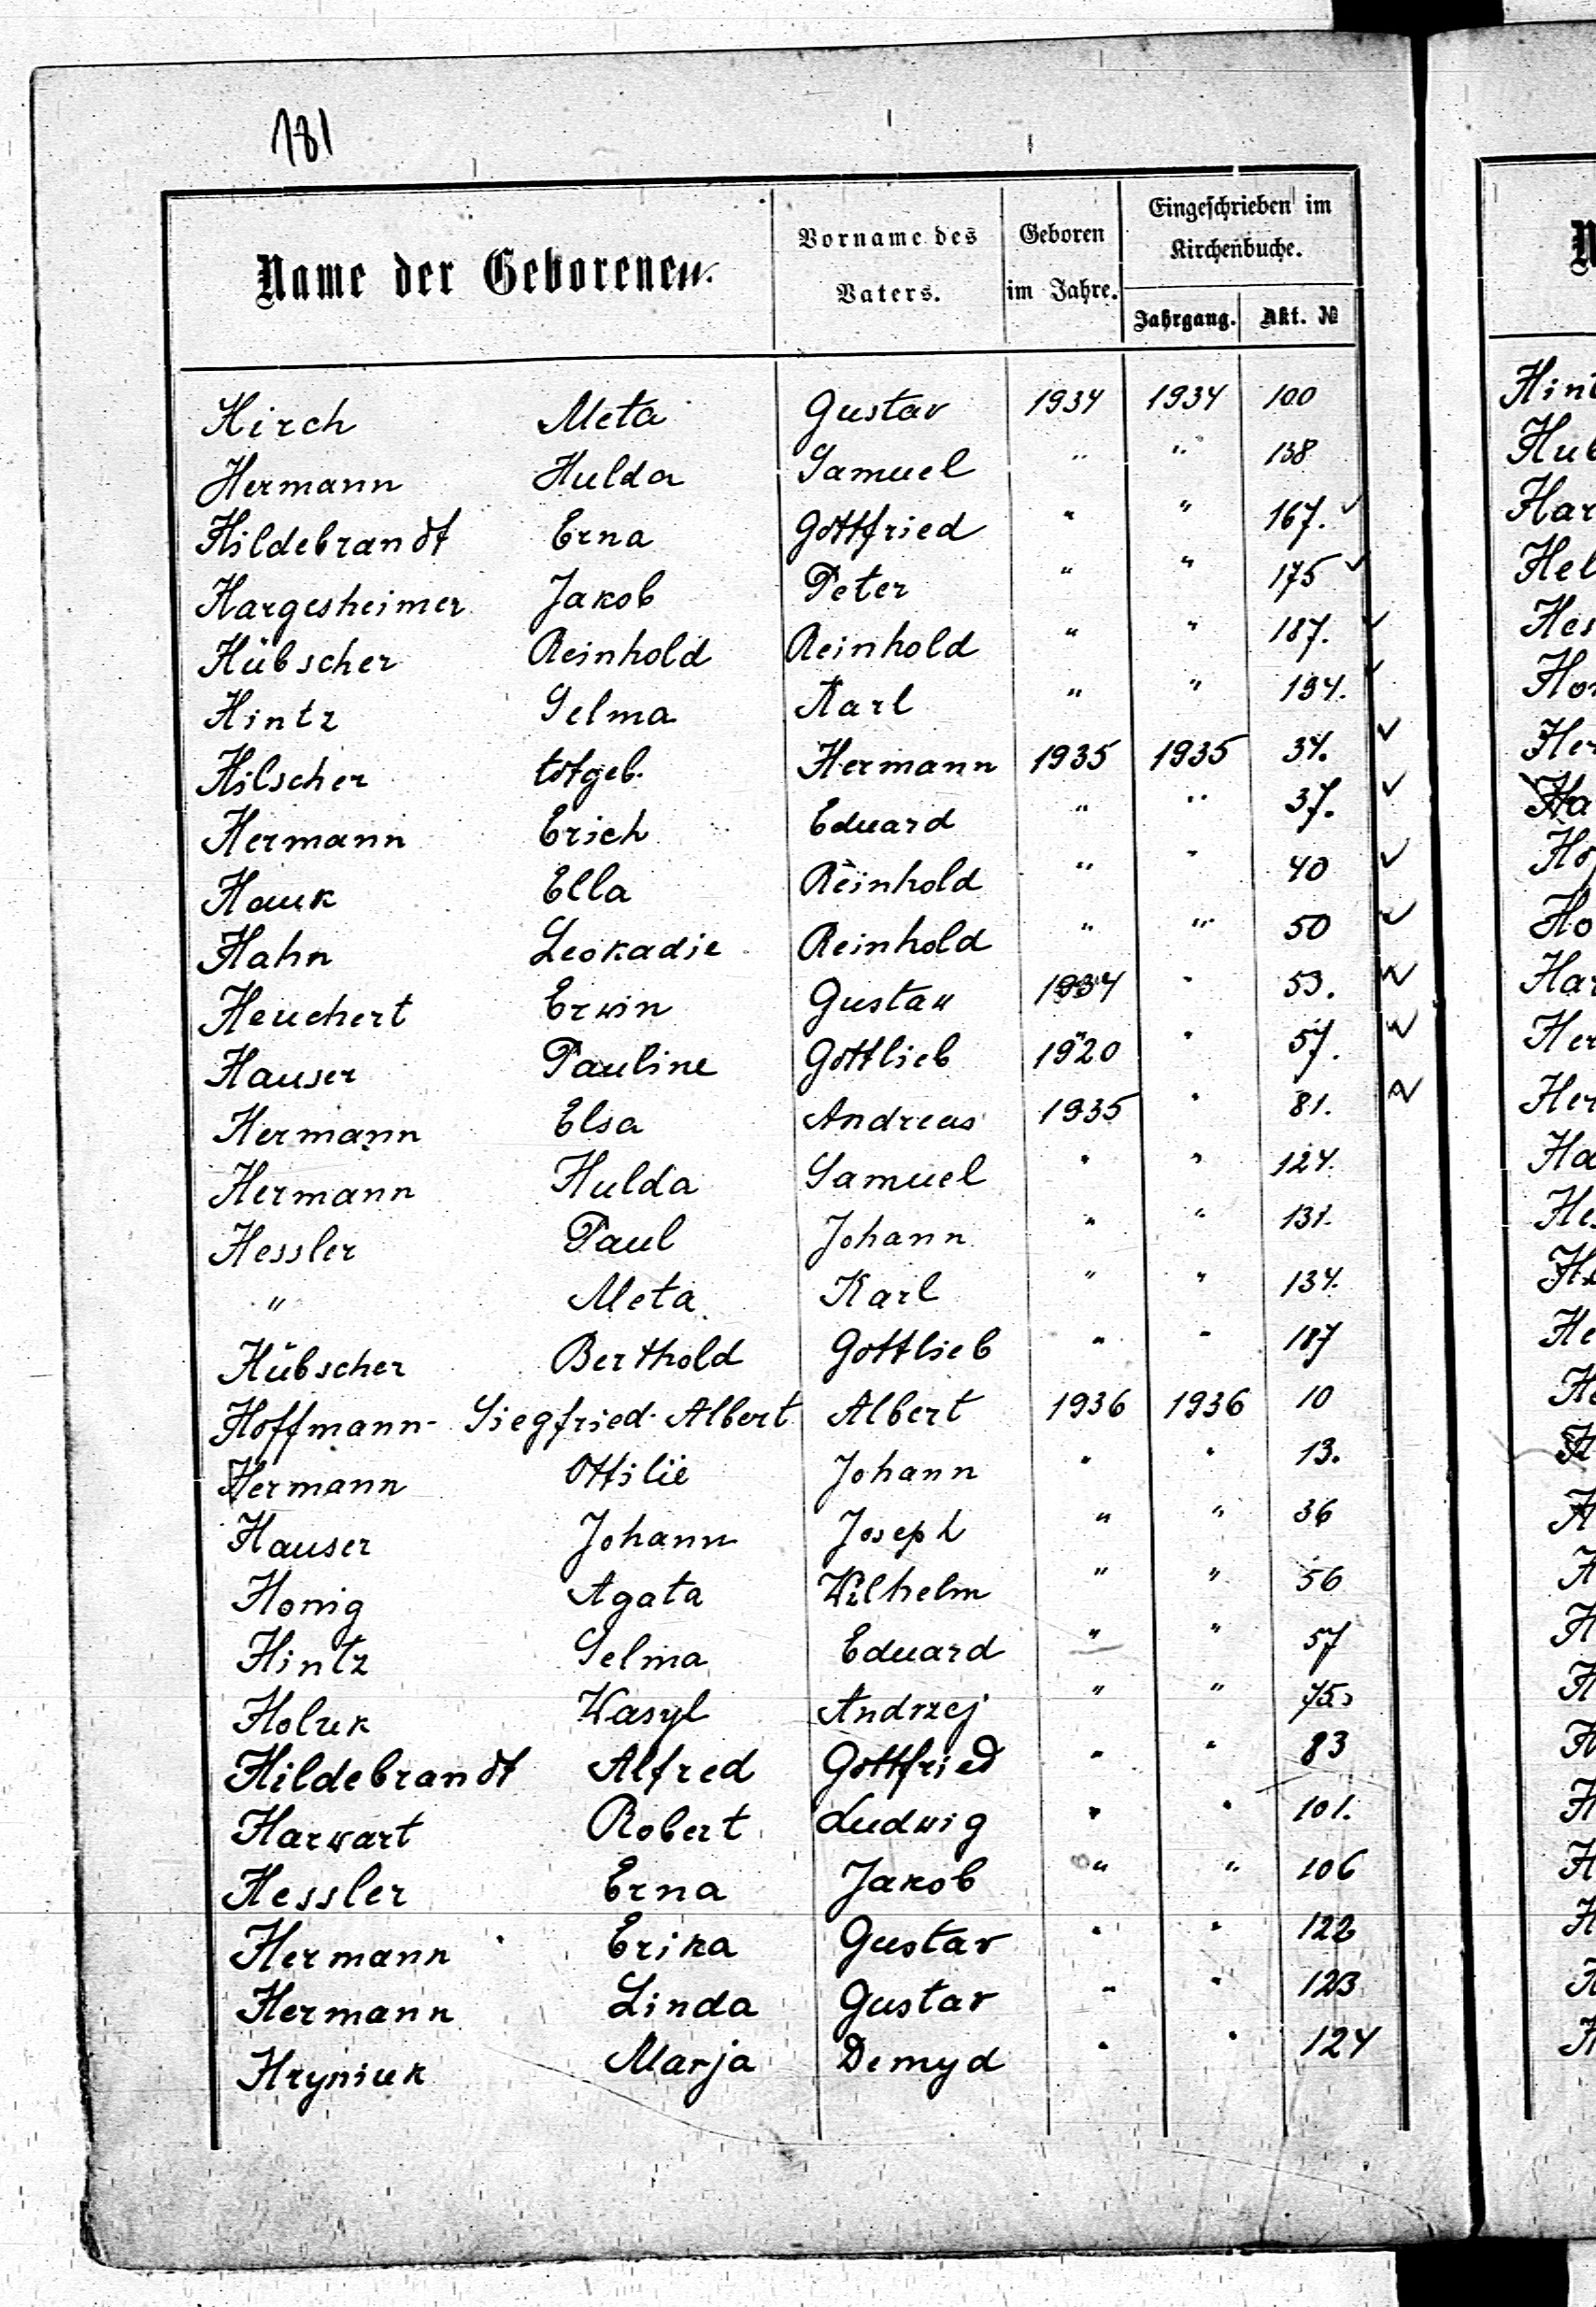 181
Name der Geborenen.
Vorname des Vaters.
Geboren im Jahre.
Eingeschrieben im Kirchenbuche.
Jahrgang. Akt. №
Hirch Meta Gustav 1934 1934 100
Hermann Hulda Samuel " " 138
Hildebrandt Erna Gottfried " " 167. ✓
Hargesheimer Jakob Peter " " 175 ✓
Hübscher Reinhold Reinhold " " 187. ✓
Hintz Selma Karl " " 194. ✓
Hilscher totgeb. Hermann 1935 1935 34. ✓
Hermann Erich Eduard " " 37. ✓
Hauk Ella Reinhold " " 40 ✓
Hahn Leokadie Reinhold " " 50 ✓
Heuchert Erwin Gustaw 1934 " 53. ✓
Hauser Pauline Gottlieb 1920 " 57. ✓
Hermann Elsa Andreas 1935 " 81. ✓
Hermann Hulda Samuel " " 124.
Hessler Paul Johann " " 131.
" Meta Karl " " 134.
Hübscher Berthold Gottlieb " " 187
Hoffmann- Siegfried-Albert Albert 1936 1936 10
Hermann Ottilie Johann " " 13.
Hauser Johann Joseph " " 36
Honig Agata Wilhelm " " 56
Hintz Selma Eduard " " 57
Holuk Wasyl Andrzej " " 75
Hildebrandt Alfred Gottfried " " 83
Harwart Robert Ludwig " " 101.
Hessler Erna Jakob " " 106
Hermann Erika Gustav " " 122
Hermann Linda Gustav " " 123
Hryniuk Marja Demyd " " 124
Hub
Har
Hel